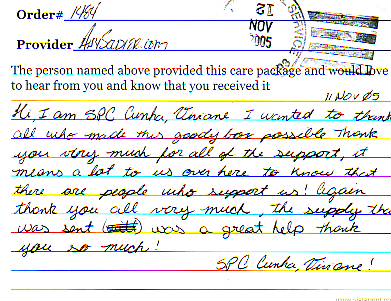 Order# 1484
12
NOV
2005
SERVICE
Provider AnySoldier.com
The person named above provided this care package and would love
to hear from you and know that you received it
11 NOV 05
Hi, I am SPC Cunha, Viviane I wanted to thank
all who made this goody box possible Thank
you very much for all of the support, it
means a lot to us over here to know that
there are people who support us! Again
thank you all very much, the supply tha
was sent was a great help thank
you so much!
SPC Cunha, Viviane!